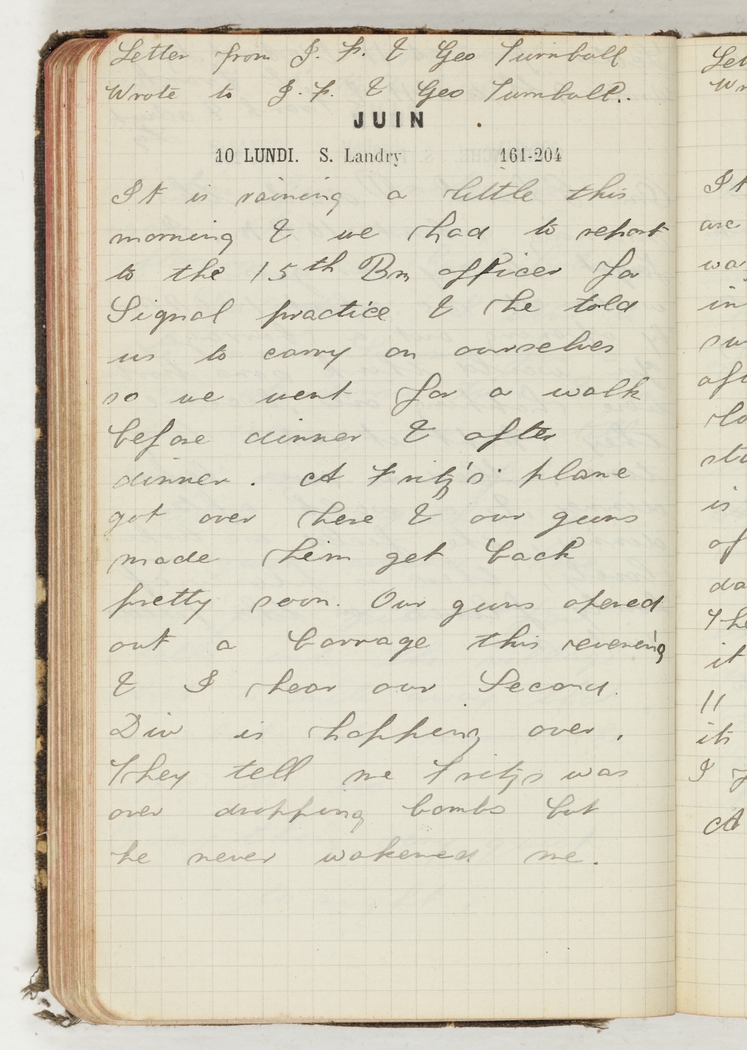 Letter from J. F. & Geo Turnbull
Wrote to J. F. & Geo Turnbull.
JUIN
10 LUNDI. S. Landry 161-204
It is raining a little this
morning & we had to report
to the 15th Bn officer for
Signal practice & he told
us to carry on ourselves
so we went for a walk
before dinner & after
dinner. A Fritz's plane
got over here & our guns
made him get back
pretty soon. Our guns opened
out a barrage this evening
& I hear our Second
Div is hopping over.
They tell me Fritzs was
over dropping bombs but
he never wakened me.